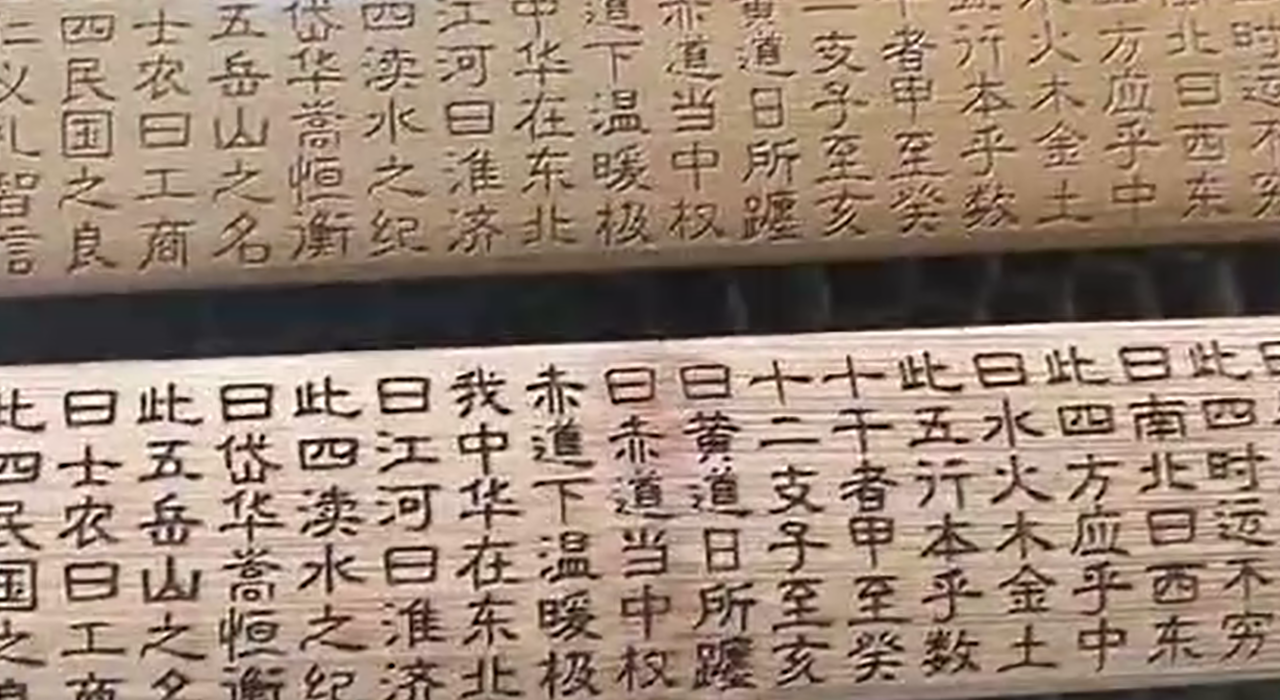 时运不穷
北曰西东
方应乎中
火木金土
行本乎数
者甲至癸
二支子至亥
黄道日所躔
赤道当中权
道下温暖极
中华在东北
江河曰淮济
四渎水之纪
岱华嵩恒衡
五岳山之名
士农曰工商
四民国之良
义礼智信
曰
此四时运不穷
曰南北曰西东
此四方应乎中
曰水火木金土
此五行本乎数
十干者甲至癸
十二支子至亥
曰黄道日所躔
曰赤道当中权
赤道下温暖极
我中华在东北
曰江河曰淮济
此四渎水之纪
曰岱华嵩恒衡
此五岳山之名
曰士农曰工商
此四民国之良